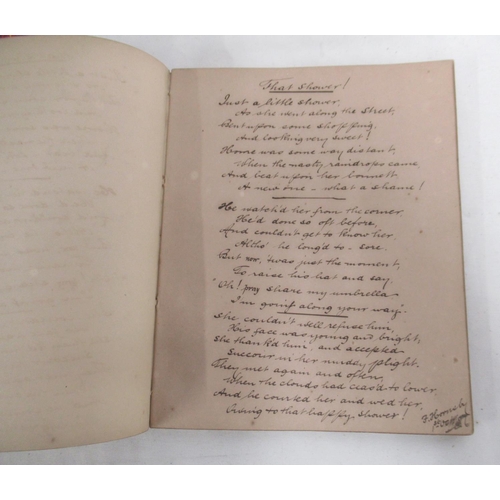 That Shower!
Just a little shower,
As she went along the street,
Bent upon some shopping,
And looking very sweet!
Home was some way distant,
When the nasty raindrops came
And beat upon her bonnet.
A new one – what a shame!
He watch'd her from the corner,
He'd done so oft before,
And couldn't get to know her
Altho' he long'd to - sore.
But now, 'twas just the moment,
To raise his hat and say,
"Oh! pray share my umbrella
I'm going along your way."
She couldn't well refuse him,
His face was young and bright,
She thank'd him, and accepted
Succour in her plight.
They met again and often,
When the clouds had ceas'd to lower
And he courted her and wed her,
Owing to that happy shower!